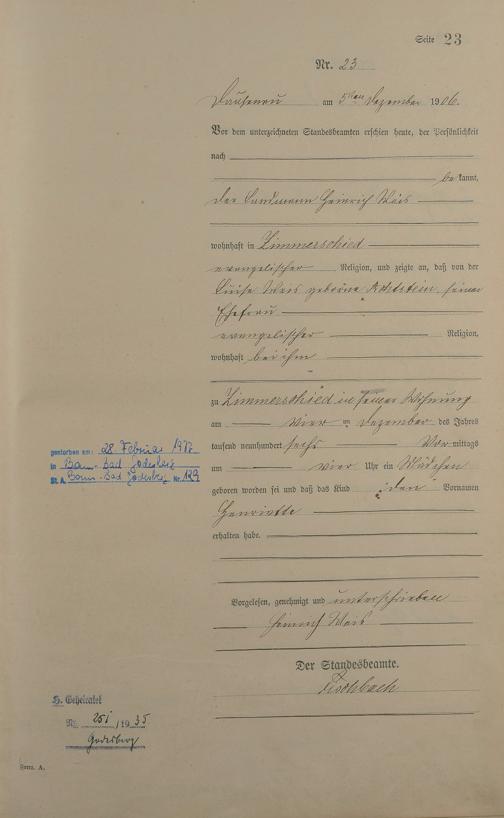 Seite 23
Nr. 23
Dausenau am 5ten Dezember 1906.
Vor dem unterzeichneten Standesbeamten erschien heute, der Persönlichkeit
nach
bekannt,
der Landmann Heinrich Wais
wohnhaft in Zimmerschied
evangelischer Religion, und zeigte an, daß von der
Luise Wais geborne seiner
Ehefrau
evangelischer Religion,
wohnhaft bei ihm
zu Zimmerschied in seiner Wohnung
am vier Dezember des Jahres
tausend neunhundert sechs Vormittags
um vier Uhr ein Mädchen
geboren worden sei und daß das Kind den Vornamen
Henriette
erhalten habe.
Vorgelesen, genehmigt und unterschrieben
Heinrich Wais
Der Standesbeamte.
Fischbach
gestorben am: 28. Februar
in Bonn-Bad Godesberg
St. A. Bonn-Bad Godesberg Nr. 129
H. Geheiratet
Nr. 251/1935
Godesberg
Form. A.